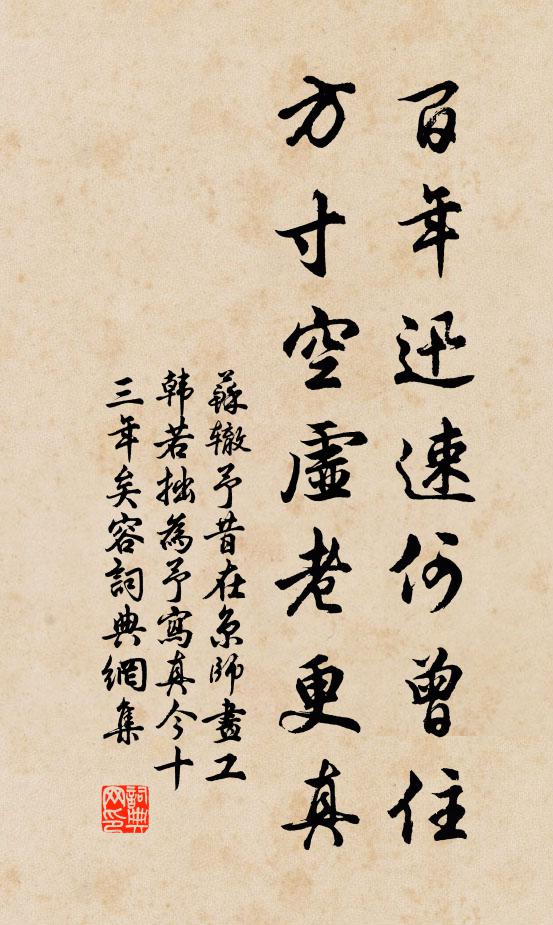 百年迅速何曾住
方寸空虛老更真
蘇轍予昔在京師畫工
韩若拙為予寫真今十
三年矣容詞典網集
詞典网印